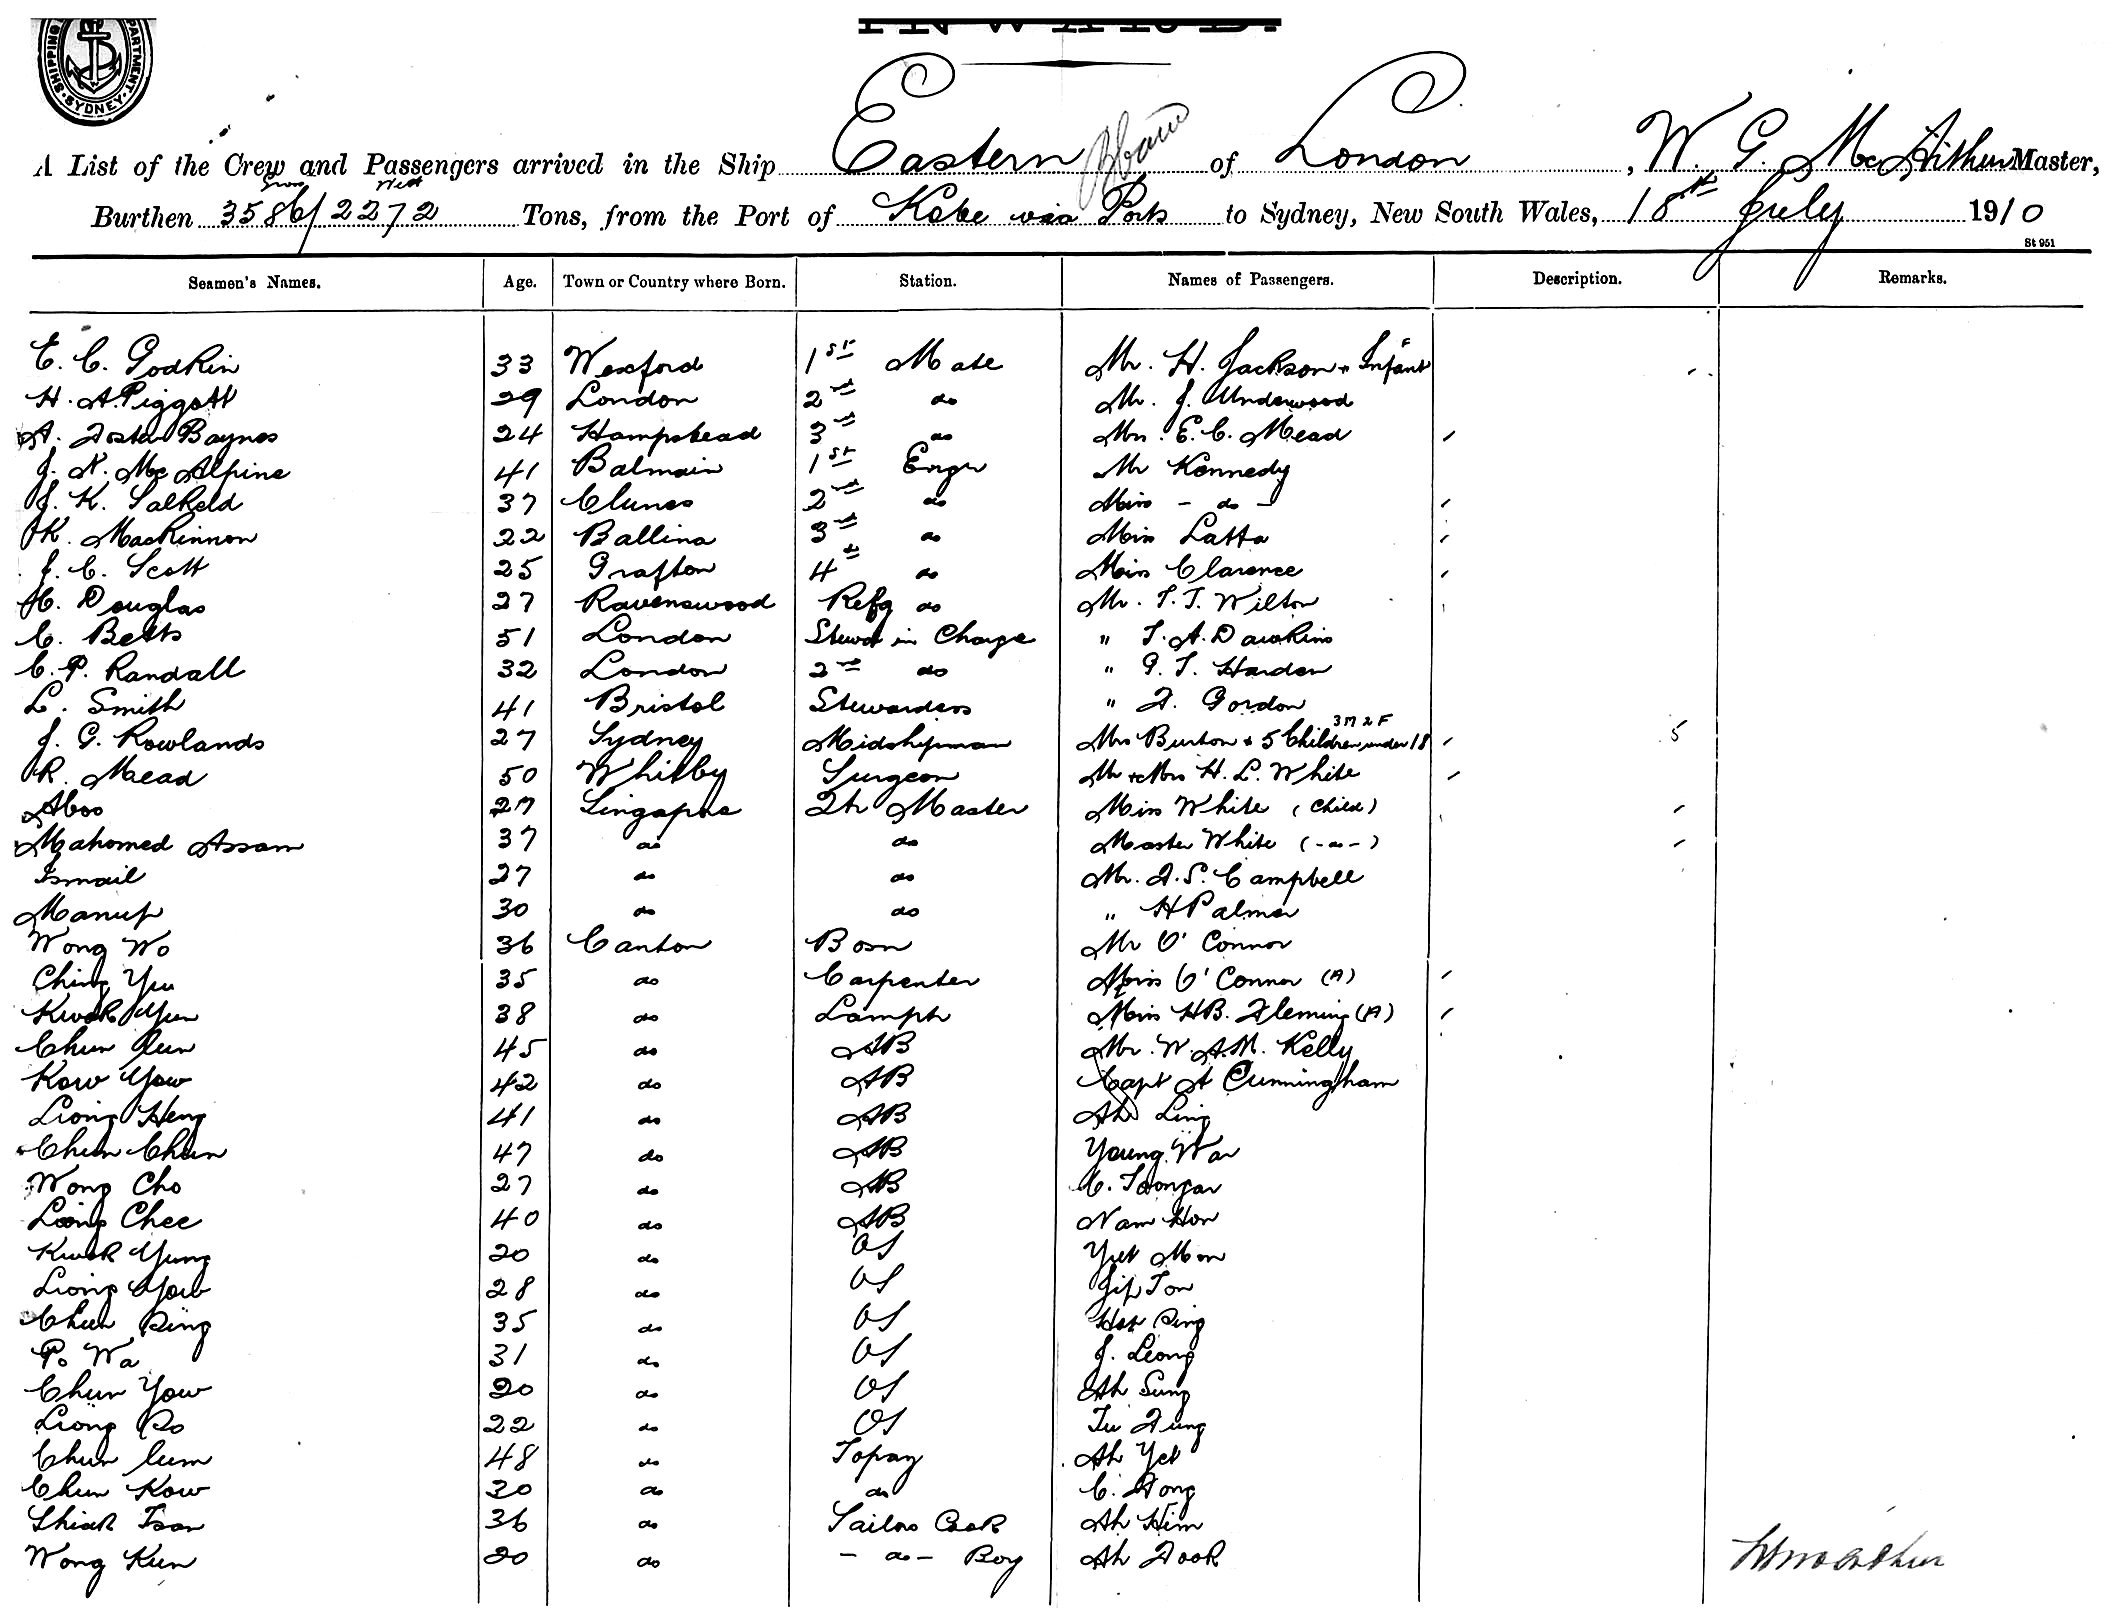 INWARD.
SHIPPING DEPARTMENT SYDNEY
A List of the Crew and Passengers arrived in the Ship Eastern of London, W. G. McArthur Master,
Gross Nett
Burthen 3586/2272 Tons, from the Port of Kobe via Ports to Sydney, New South Wales, 18th July 1910
St 951
Seamen's Names. Age. Town or Country where Born. Station. Names of Passengers. Description. Remarks.
E. C. Godkin 33 Wexford 1st Mate Mr. H. Jackson + Infant
H. A. Piggott 29 London 2nd do Mr. J. Underwood
A. Foster Baynes 24 Hampstead 3rd do Mrs. E. C. Mead
J. N. McAlpine 41 Balmain 1st Engr Mr Kennedy
J. K. Salkeld 37 Clunes 2nd do Miss - do -
K. MacKinnon 22 Ballina 3rd do Miss Latta
J. C. Scott 25 Grafton 4th do Miss Clarence
H. Douglas 27 Ravenswood Refg do Mr. T. J. Wilton
C. Betts 51 London Stewd in Charge " T. A. Dawkins
C. P. Randall 32 London 2nd do " G. T. Harden
L. Smith 41 Bristol Stewardess " F. Gordon
3 M 2 F
J. G. Rowlands 27 Sydney Midshipman Mrs Burton + 5 Children under 18 5
R. Mead 50 Whitby Surgeon Mr + Mrs H. L. White
Aboo 27 Singapore Qr Master Miss White (Child)
Mahomed Assam 37 do do Master White (-do-)
Ismail 27 do do Mr. F. S. Campbell
Manup 30 do do " H Palmer
Wong Wo 36 Canton Bosn Mr O'Connor
Ching Yeu 35 do Carpenter Miss O'Connor (A)
Kwok Yun 38 do Lampr Miss HB. Fleming (A)
Chun Lun 45 do AB Mr. W. A. M. Kelly
Kow Yow 42 do AB Capt A Cunningham
Liong Heng 41 do AB Ah Ling
Chun Chun 47 do AB Young War
Wong Cho 27 do AB C.
Liong Chee 40 do AB Nam Hon
Kwok Yung 20 do OS Yut Mon
Liong Yow 28 do OS Jip Ton
Chun Sing 35 do OS Hop Sing
Po Wa 31 do OS J. Leong
Chun Yow 20 do OS Ah Sung
Liong So 22 do OS Tu Fung
Chun Lum 48 do Topay Ah Yet
Chun Kow 30 do do C. Fong
Shiak Tson 36 do Sailors Cook Ah Him
Wong Kun 20 do - do - Boy Ah Fook